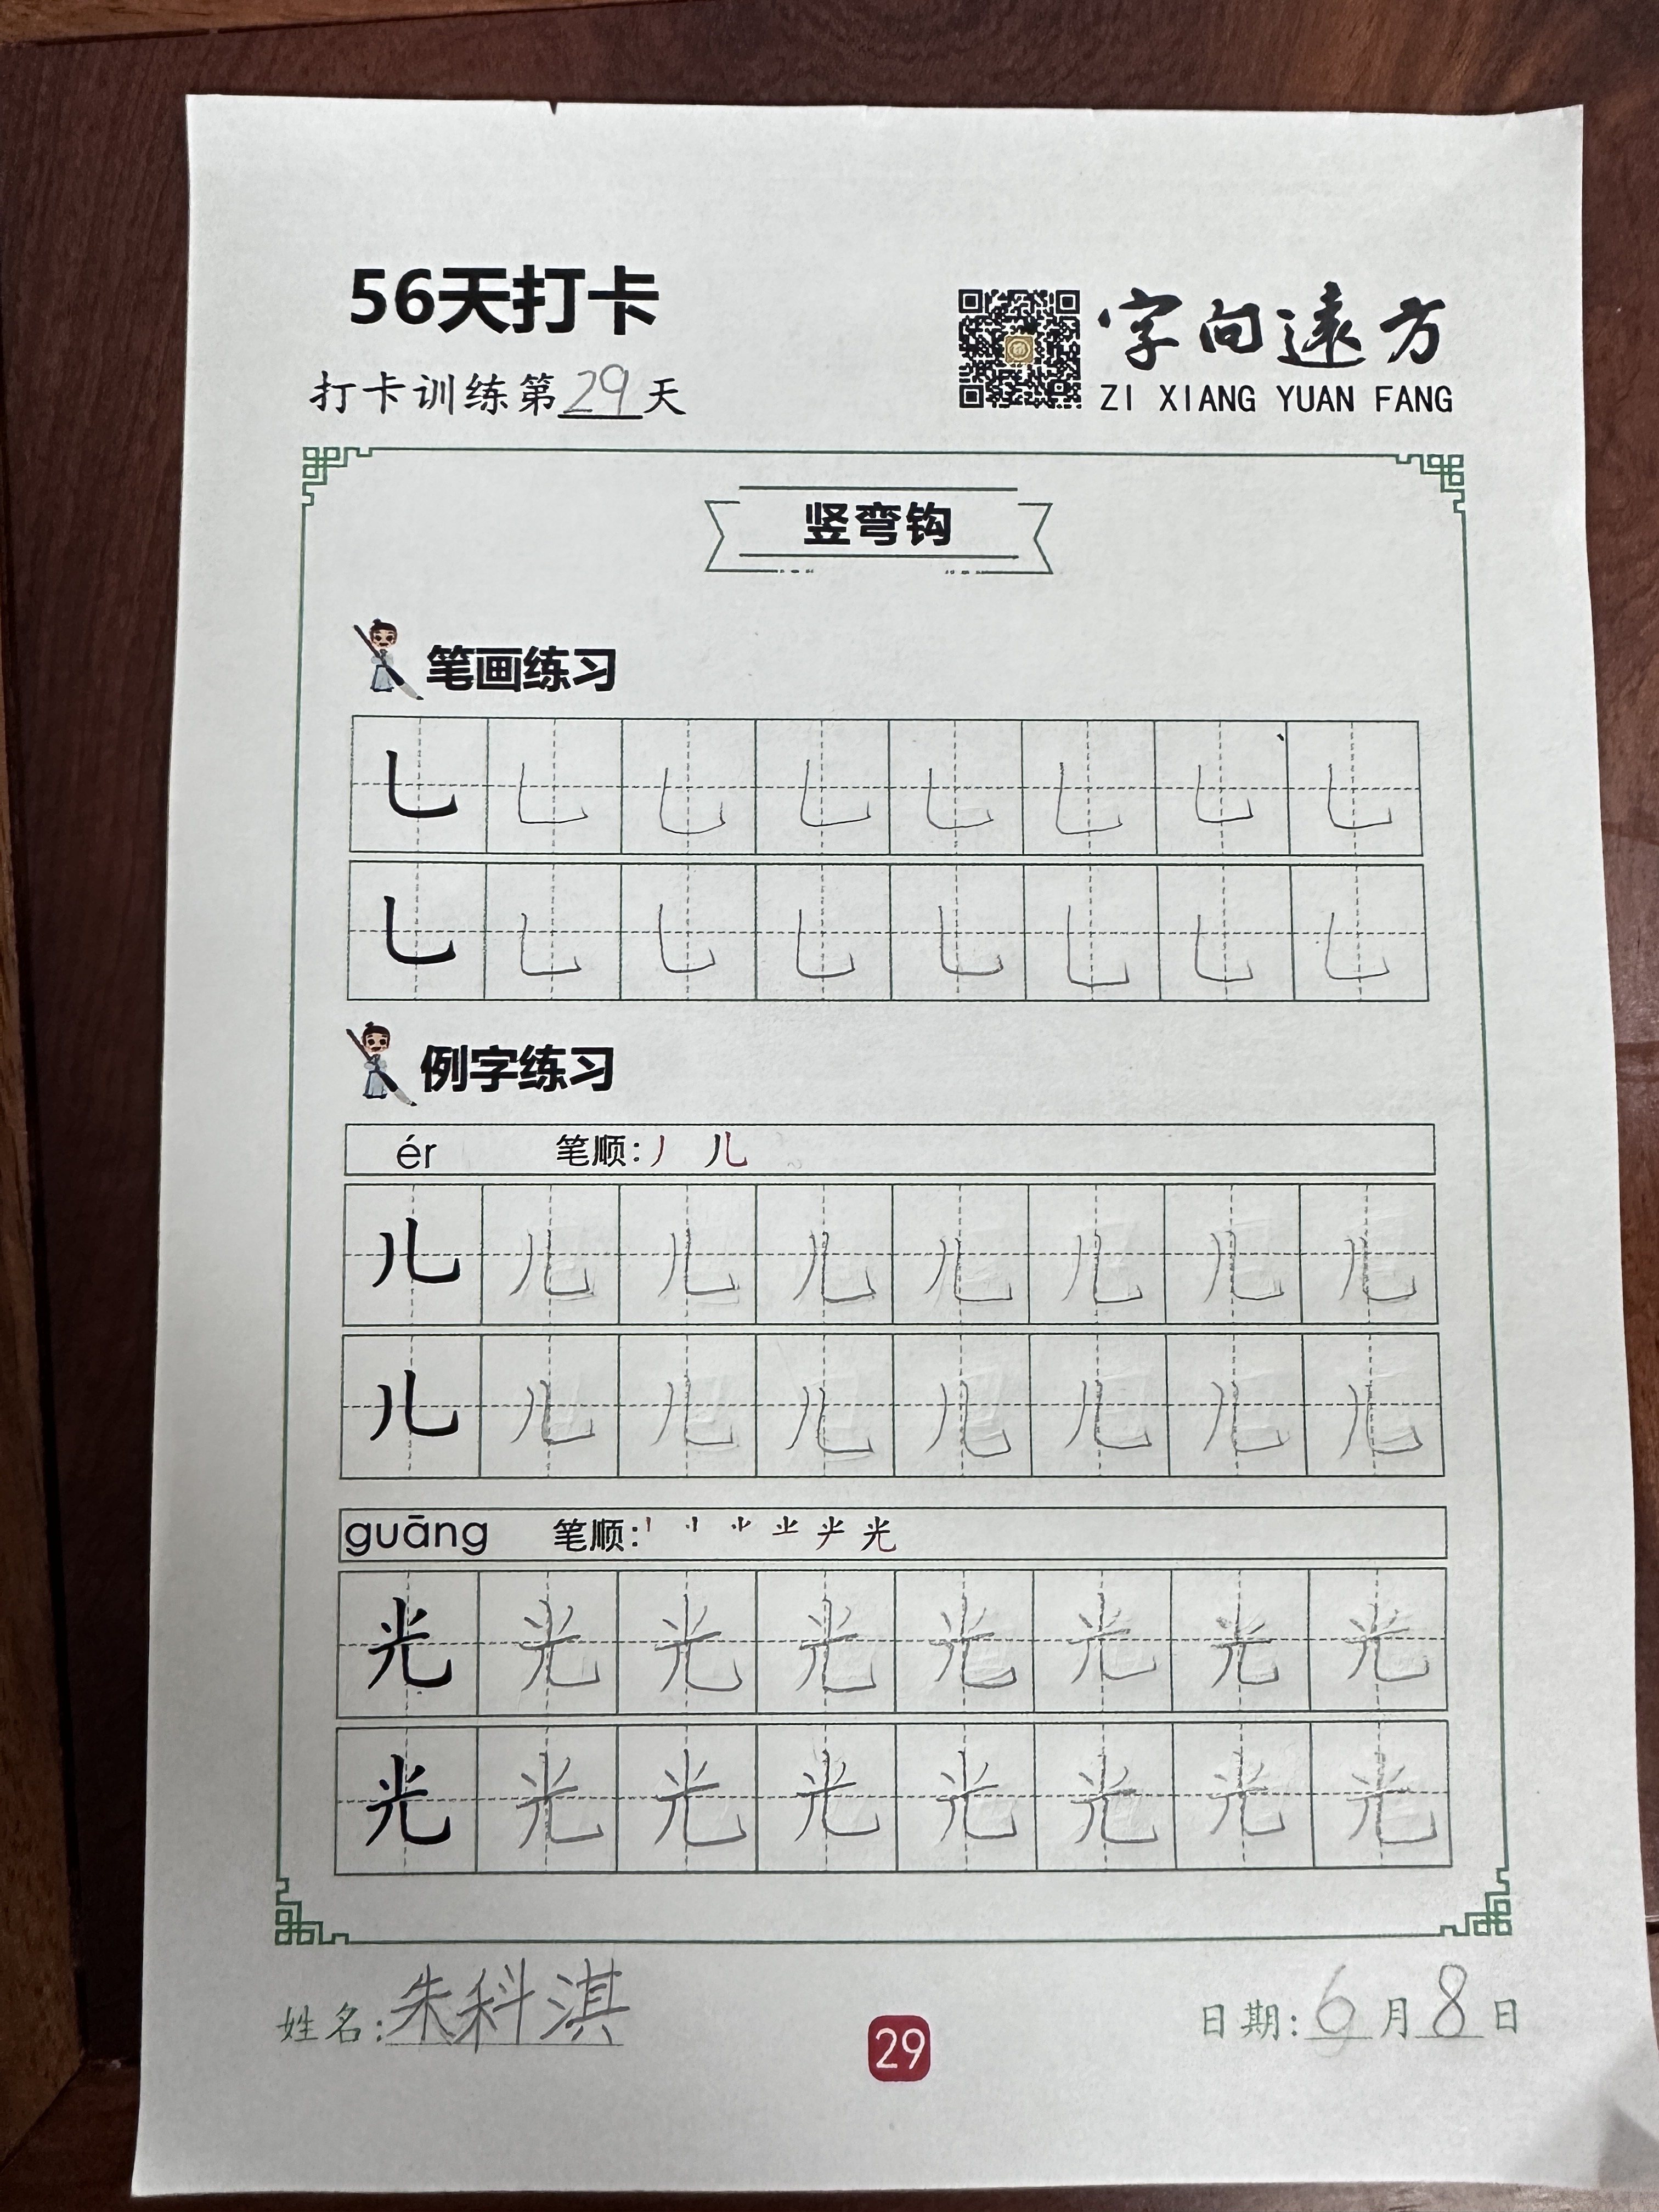 56天打卡
打卡训练第29天
字向遠方
ZI XIANG YUAN FANG
竖弯钩
笔画练习
乚 乚 乚 乚 乚 乚 乚 乚
乚 乚 乚 乚 乚 乚 乚 乚
例字练习
ér 笔顺: 丿 儿
儿 儿 儿 儿 儿 儿 儿 儿
儿 儿 儿 儿 儿 儿 儿 儿
guāng 笔顺: 光
光 光 光 光 光 光 光 光
光 光 光 光 光 光 光 光
姓名:朱科淇
29
日期:6月8日